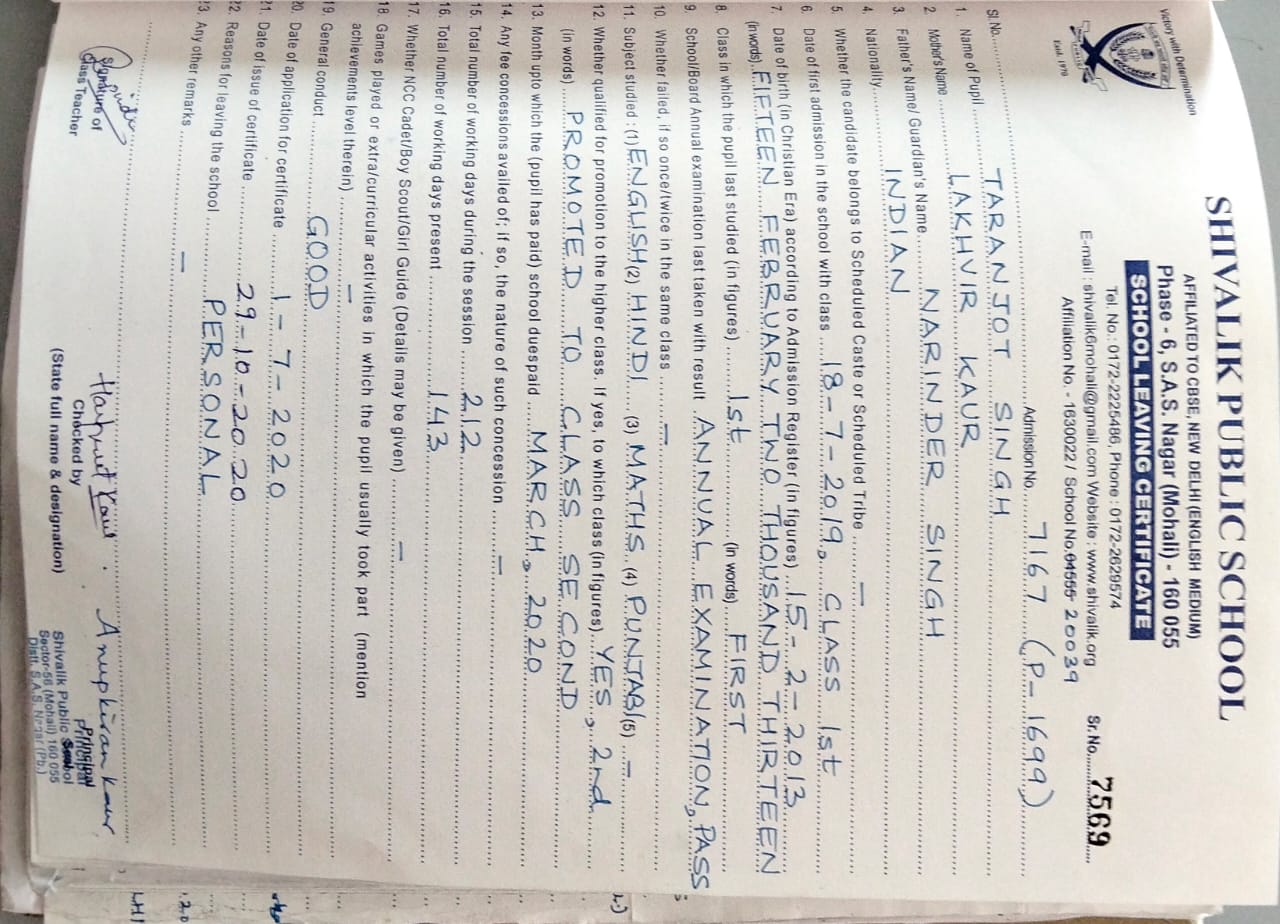 Victory with Determination
Estd. 1970
SHIVALIK PUBLIC SCHOOL
AFFILIATED TO CBSE, NEW DELHI (ENGLISH MEDIUM)
Phase - 6, S.A.S. Nagar (Mohali) - 160 055
SCHOOL LEAVING CERTIFICATE
Tel. No.: 0172-2225486, Phone : 0172-2629574
E-mail : shivalik6mohali@gmail.com Website : www.shivalik.org
Sr. No. 7569
Affiliation No. - 1630022 / School No. 04555 20039
Sl. No. Admission No. 7167 (P-1699)
1. Name of Pupil TARANJOT SINGH
2. Mother's Name LAKHVIR KAUR
3. Father's Name/ Guardian's Name NARINDER SINGH
4. Nationality INDIAN
5. Whether the candidate belongs to Scheduled Caste or Scheduled Tribe —
6. Date of first admission in the school with class 18-7-2019, CLASS 1st
7. Date of birth (in Christian Era) according to Admission Register (in figures) 15-2-2013
(in words) FIFTEEN FEBRUARY TWO THOUSAND THIRTEEN
8. Class in which the pupil last studied (in figures) 1st (in words) FIRST
9. School/Board Annual examination last taken with result ANNUAL EXAMINATION, PASS
10. Whether failed, if so once/twice in the same class —
11. Subject studied : (1) ENGLISH (2) HINDI (3) MATHS (4) PUNJABI (5) —
12. Whether qualified for promotion to the higher class. If yes, to which class (in figures) YES, 2nd
(in words) PROMOTED TO CLASS SECOND
13. Month upto which the (pupil has paid) school duespaid MARCH, 2020
14. Any fee concessions availed of; if so, the nature of such concession —
15. Total number of working days during the session 212
16. Total number of working days present 143
17. Whether NCC Cadet/Boy Scout/Girl Guide (Details may be given) —
18. Games played or extra/curricular activities in which the pupil usually took part (mention
achievements level therein) —
19. General conduct GOOD
20. Date of application for certificate 1-7-2020
21. Date of issue of certificate 29-10-2020
22. Reasons for leaving the school PERSONAL
23. Any other remarks —
Signature of
Class Teacher
Harpreet Kaur
Checked by
(State full name & designation)
Anupkiran Kaur
Principal
Principal
Shivalik Public School
Sector-56 (Mohali) 160 055
Distt. S.A.S. Nagar (Pb.)